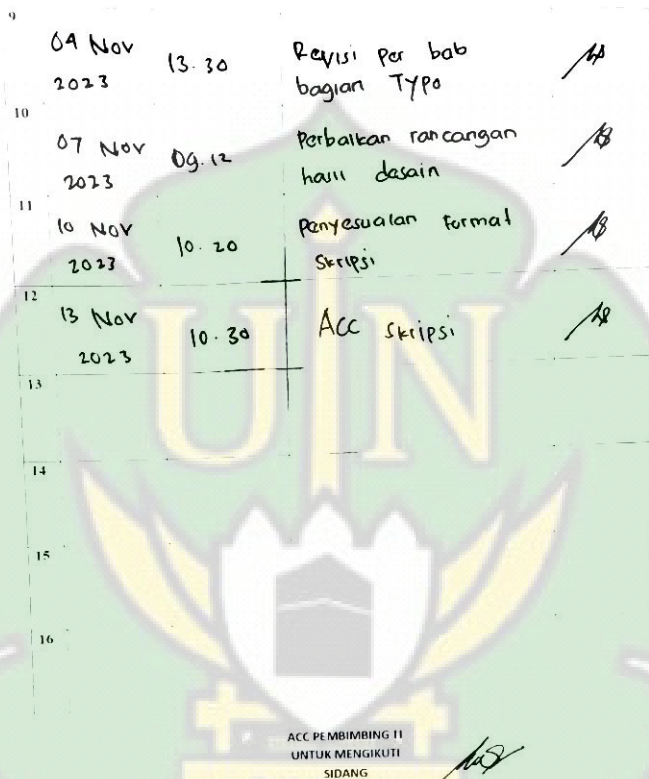 9
04 Nov 13.30 Revisi per bab
2023 bagian Typo
10
07 Nov 09.12 Perbaikan rancangan
2023 hasil desain
11
10 Nov 10.20 Penyesuaian format
2023 Skripsi
12
13 Nov 10.30 ACC Skripsi
2023
13
14
15
16
UIN
ACC PEMBIMBING II
UNTUK MENGIKUTI
SIDANG